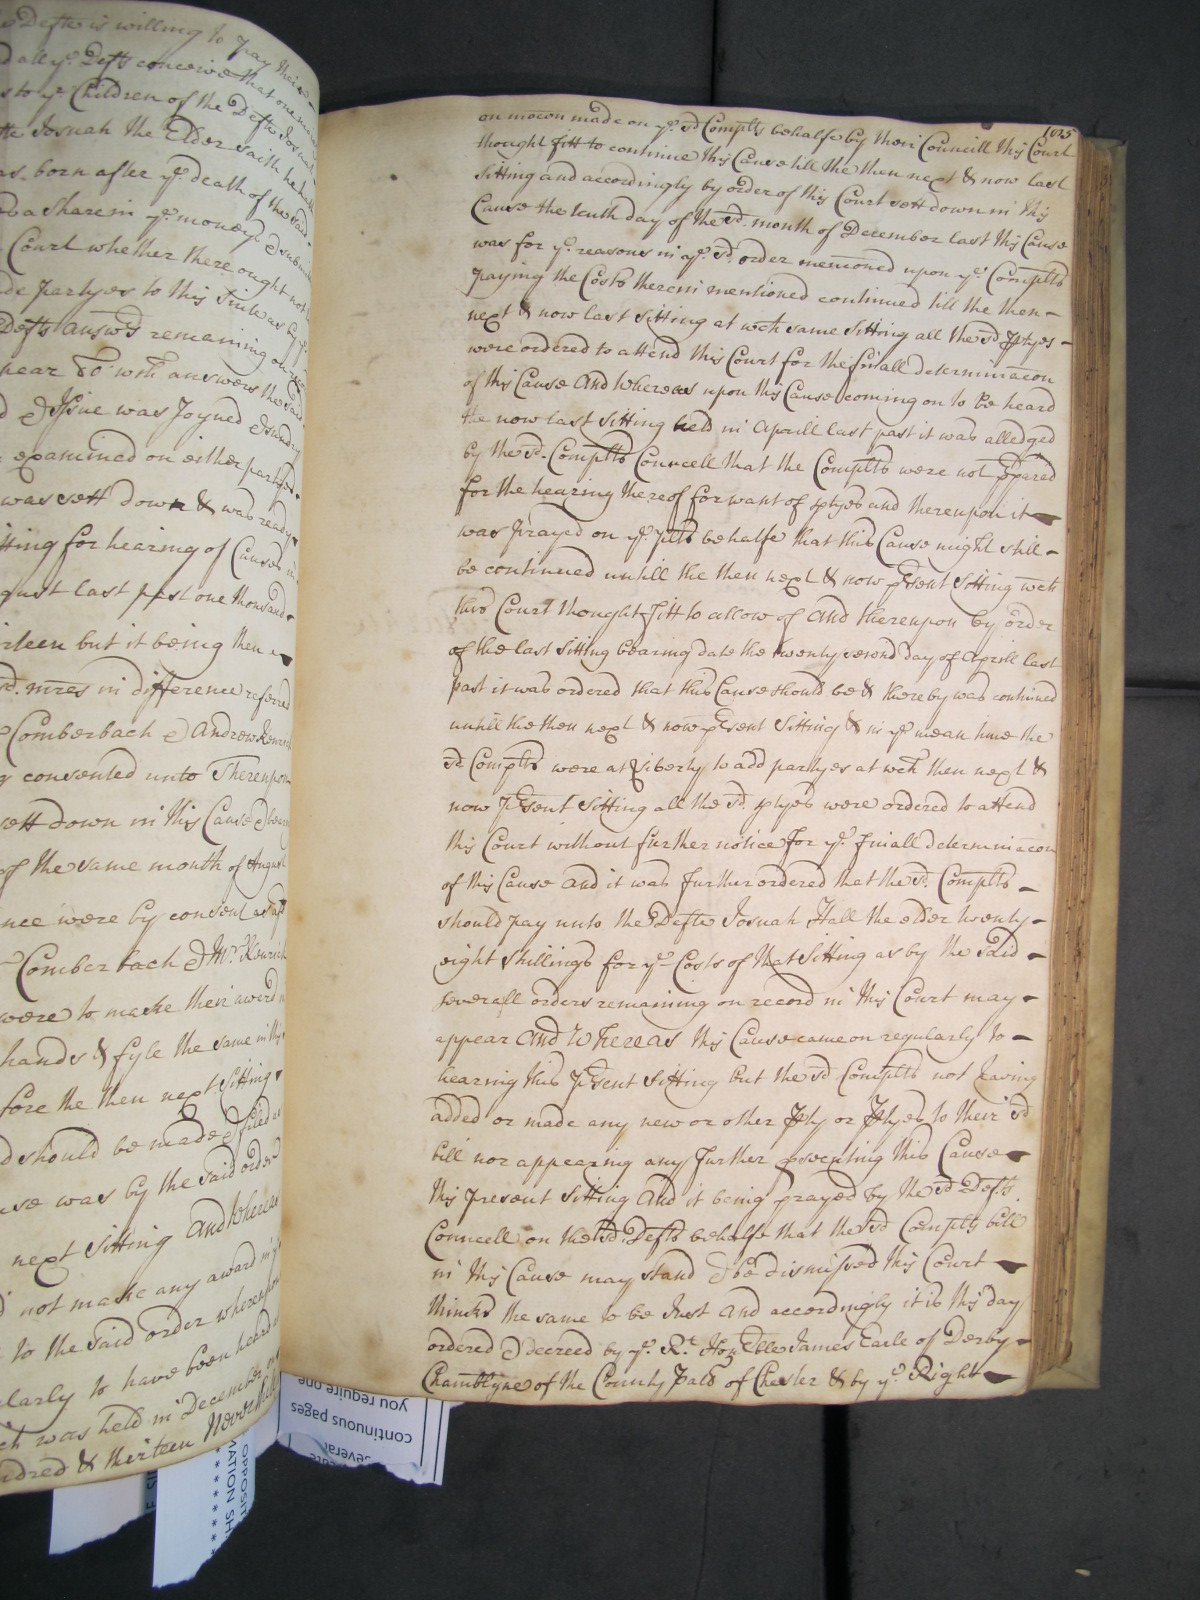 s Defte is willing to pay their
d all ye. Defts conceive that one
s to ye Children of the Defte Josuah
tte Josuah the Elder saith he
as. born after ye death of the said
a share in ye money & submit
Court whether there ought not
de partyes to this Suite as by ye
Defts answrs remaining on
pear To wch answers the said
d & Issue was Joyned & sundry
examined on either parte
was sett down & was ready
tting for hearing of Causes in
gust last past one thousand
rteen but it being then
sd. mres in difference referred
Comberbach & Andrew Kenrick
y consented unto Thereupon
sett down in this Cause &
of the same month of August
nce were by consent as
Comberbach & Mr. Kenrick
were to make their award
hands & fyle the same in this
fore the then next Sitting
d should be made & filed
use was by the said order
next Sitting And Whereas
d not make any award in
to the said order whereupon
ularly to have been heard
ch was held in December
ndred & thirteen Neverthel
1025
on mocon made on ye. sd Complts behalfe by their Councill this Court
thought fitt to continue this Cause till the then next & now last
Sitting and accordingly by order of this Court sett down in this
Cause the tenth day of the sd. month of December last this Cause
was for ye. reasons in ye. sd. order menconed upon ye Complts
paying the Costs therein mentioned continued till the then
next & now last sitting at wch same Sitting all the sd Ptyes
were ordered to attend this Court for the finall determinacon
of this Cause And Whereas upon this Cause coming on to be heard
the now last Sitting held in Aprill last past it was alledged
by the sd. Complts Councell that the Complts were not Ppared
for the hearing thereof for want of ptyes and thereupon it
was prayed on ye. plts behalfe that this Cause might still
be continued untill the then next & now Psent Sitting wch
this Court thought fitt to allow of And thereupon by order
of the last Sitting bearing date the twenty second day of Aprill last
past it was ordered that this Cause should be & thereby was continued
untill the then next & now Psent Sitting & in ye mean time the
sd Complts were at Liberty to add partyes at wch then next &
now Psent Sitting all the sd. ptyes were ordered to attend
this Court without further notice for ye. finall determinacon
of this Cause And it was further ordered that the sd. Complts
should pay unto the Defte Josuah Hall the elder twenty
eight shillings for ye Costs of that Sitting as by the said
severall orders remaining on record in this Court may
appear And Whereas this Cause came on regularly to
hearing this Psent Sitting but the sd Complts not having
added or made any new or other Pty or Ptyes to their sd
bill nor appearing any further Psecuting this Cause
this present Sitting And it being prayed by the sd Defts.
Councell on the sd. Defts behalfe that the sd Complts bill
in this Cause may stand & be dismissed this Court
thinks the same to be Just And accordingly it is this day
ordered & decreed by ye. Rt. Honble James Earle of Derby
Chamblyne of the County Pal of Chester & by ye. Right
continuous pages
you require one